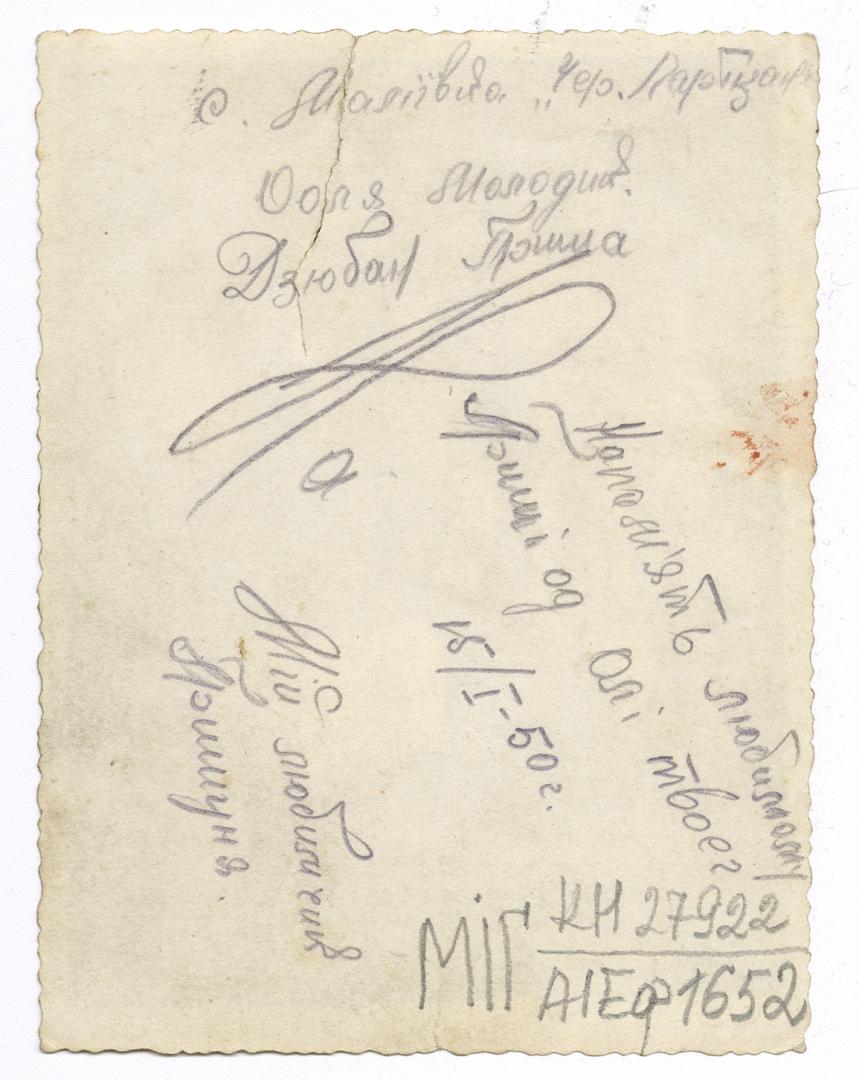 с. Маліївка „Чер. Партизан
Доля Молодиć.
Дзюбан Гриша
Напам'ять любимому
Гриші од Олі твоєї
15/I-50 г.
Мій любимчик
Гришуня.
МІГ КН 27922
АІЕф 1652